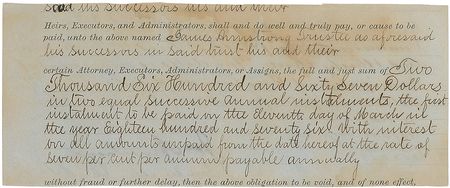 said his successors his and their
Heirs, Executors, and Administrators, shall and do well and truly pay, or cause to be
paid, unto the above named James Armstrong Trustee as aforesaid
his successors in said trust his and their
certain Attorney, Executors, Administrators, or Assigns, the full and just sum of Two
Thousand Six Hundred and Sixty Seven Dollars
in two equal successive annual instalments, the first
instalment to be paid on the Eleventh day of March in
the year Eighteen hundred and seventy six With interest
on all amounts unpaid from the date hereof at the rate of
seven per cent per annum payable annually
without fraud or further delay, then the above obligation to be void, and of none effect,